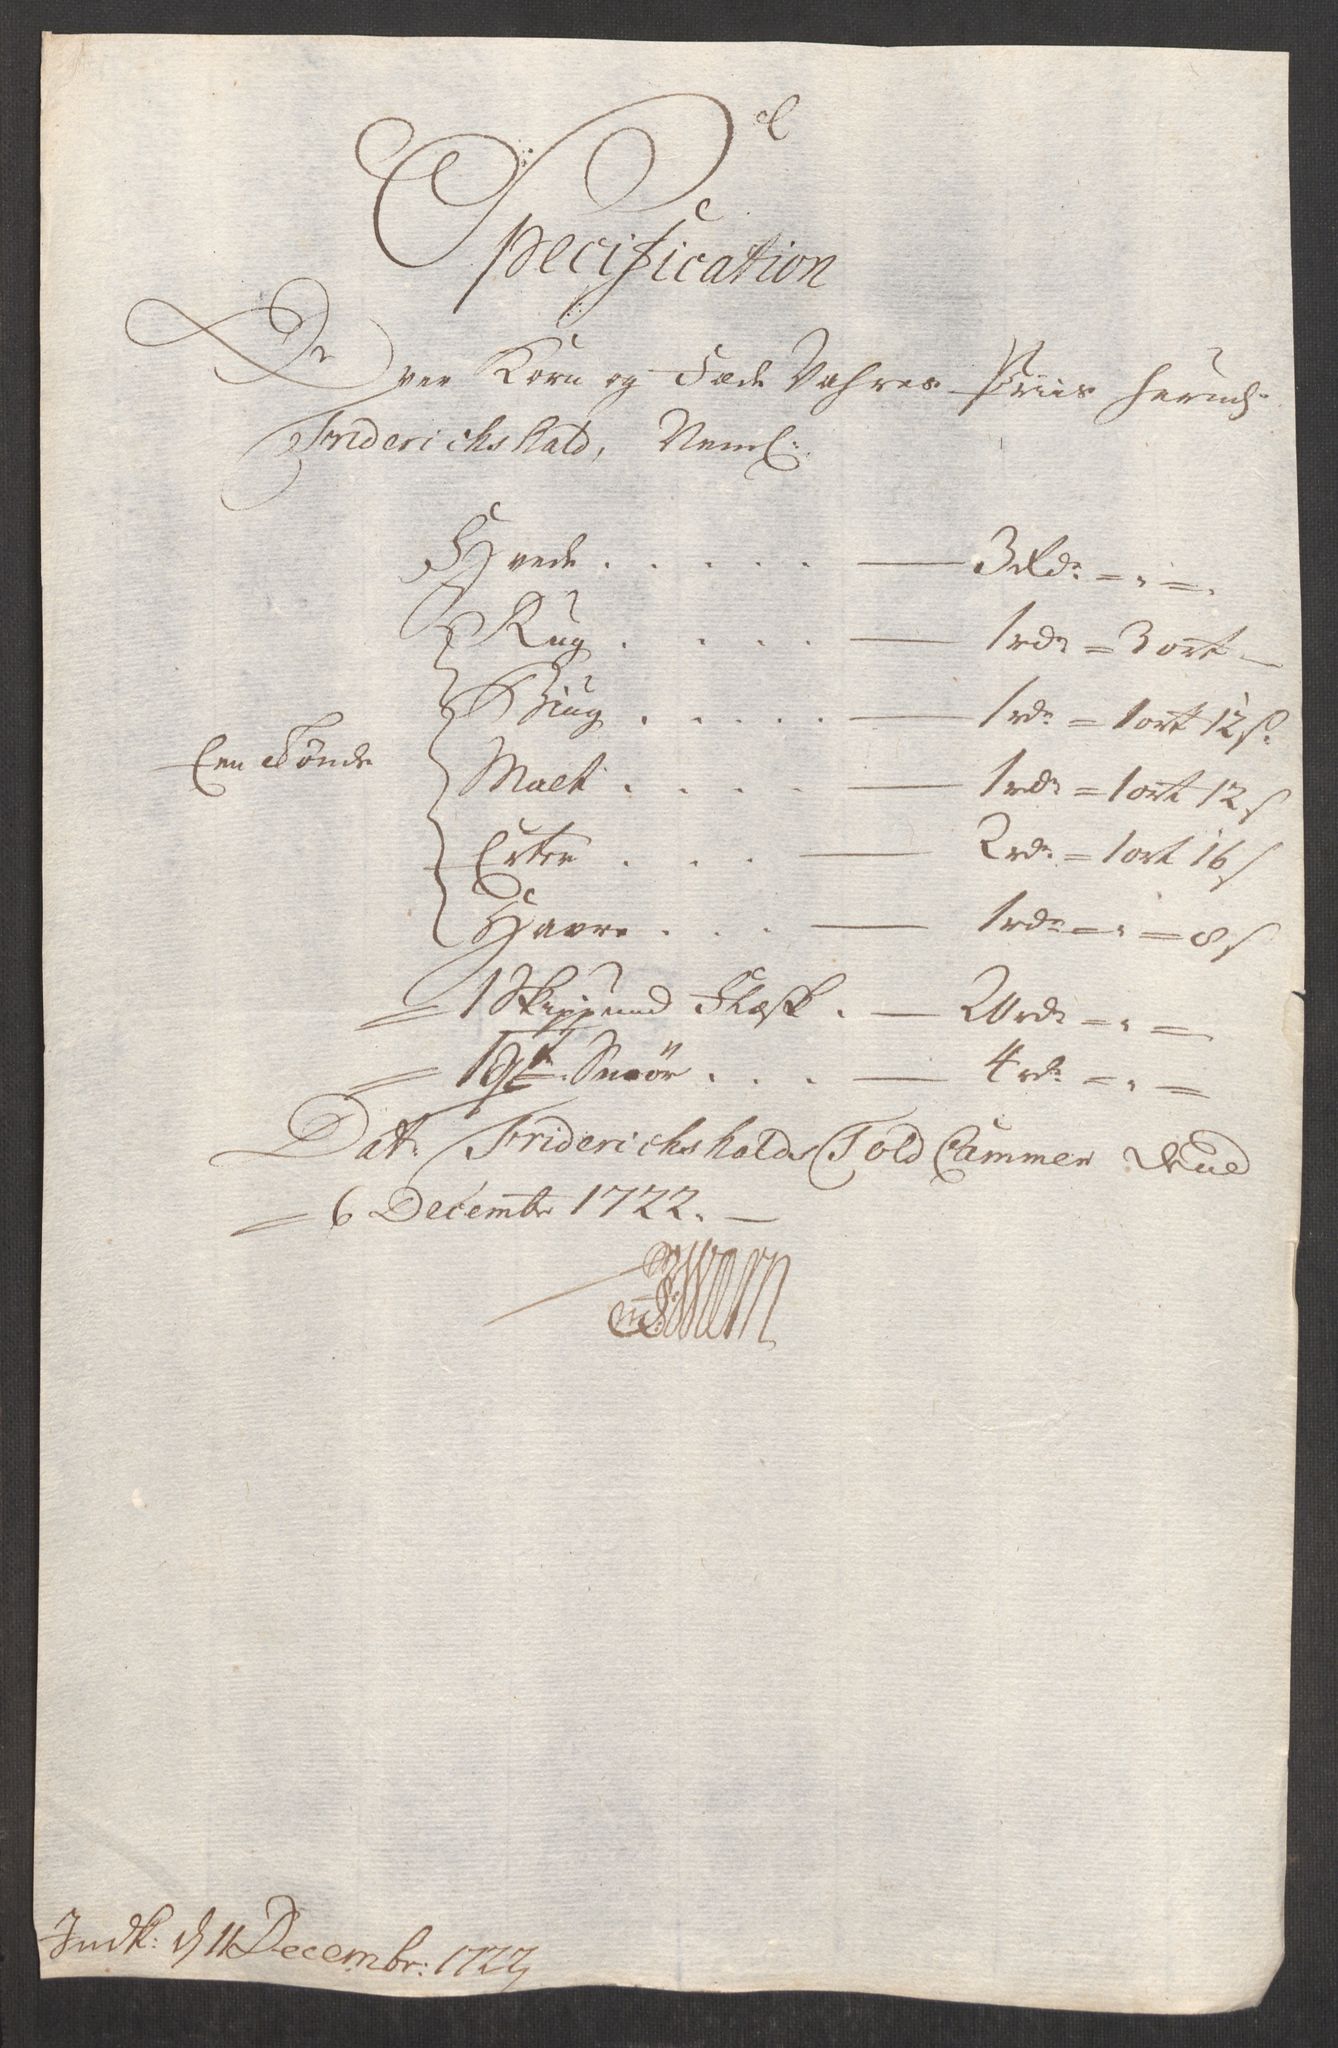 Specification
Over Korn og Fæde Vahres Priis herved
Friderichshald, Neml:
Hvede . . . . . — 3 Rd: = " = "
Rug . . . . — 1 rd: = 3 ort —
Biug . . . . . — 1 rd: = 1 ort 12 s:
Een Tønde
Malt . . . . — 1 rd: = 1 ort 12 s
Erter . . . — 2 rd: = 1 ort 16 s
Havre . . . — 1 rd: = " = 8 s
= 1 Skippund Flæsk . — 20 rd: = " =
= 1 Smør . . . — 4 rd: = " =
Dat: Friderichshalds Told Cammer dend
= 6 Decembr 1722. —
Indk: d 11 Decembr: 1722